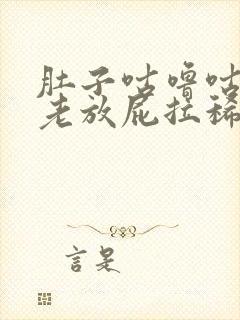 肚子咕噜咕
老放屁拉稀
言是